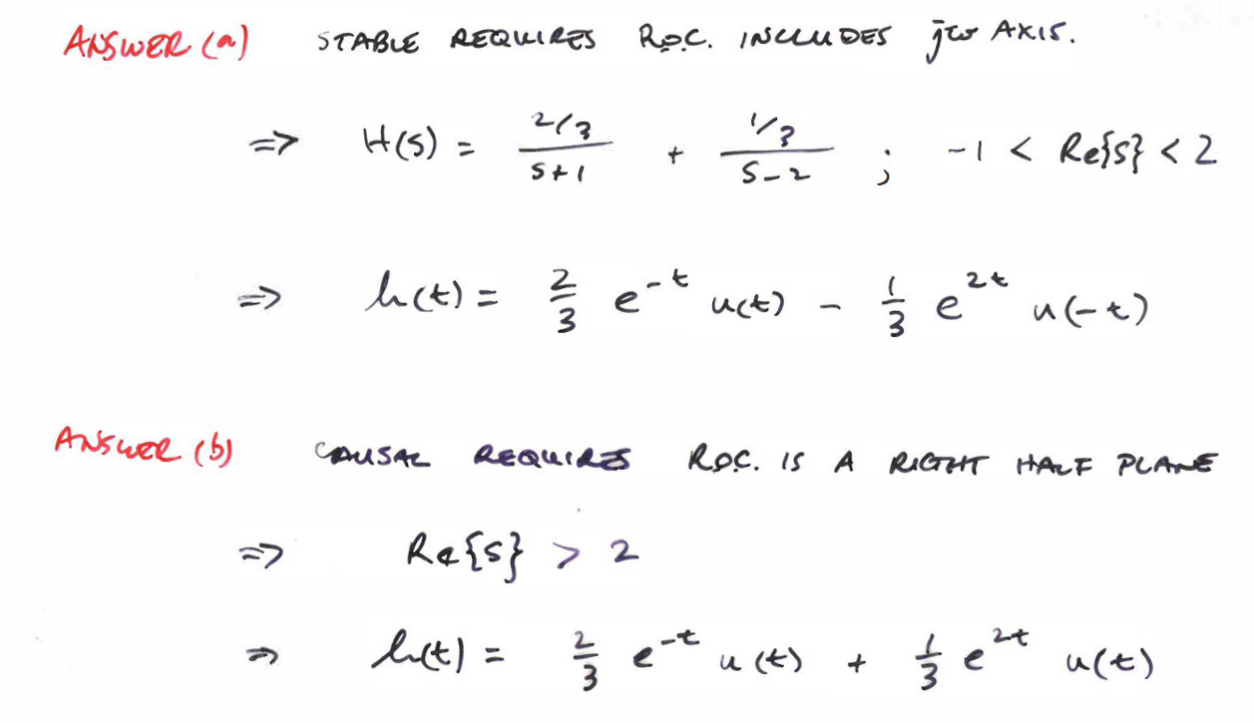 ANSWER (a) STABLE REQUIRES R.O.C. INCLUDES jω AXIS.
⇒ H(s) = 2/3 / s+1 + 1/3 / s-2 ; -1 < Re{s} < 2
⇒ h(t) = 2/3 e^-t u(t) - 1/3 e^2t u(-t)
ANSWER (b) CAUSAL REQUIRES R.O.C. IS A RIGHT HALF PLANE
⇒ Re{s} > 2
⇒ h(t) = 2/3 e^-t u(t) + 1/3 e^2t u(t)